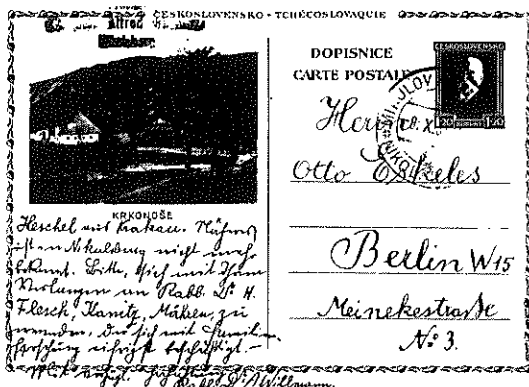 ČESKOSLOVENSKO - TCHÉCOSLOVAQUIE
Alfred
DOPISNICE
CARTE POSTALE
ČESKOSLOVENSKO
1.20 1.20
Herrn
Otto Eskeles
Berlin W15
Meinekestrasse
No 3.
KRKONOŠE
Heschel aus Krakau. Näheres
ist in Nikolsburg nicht mehr
bekannt. Bitte, sich mit Ihrem
Verlangen an Rabb. Dr. H.
Flesch, Kanitz, Mähren, zu
wenden, der sich mit Familien
forschung eifrigst beschäftigt. -
Mit vorzügl. Hochachtung
Rabb. Dr. A. Willmann.